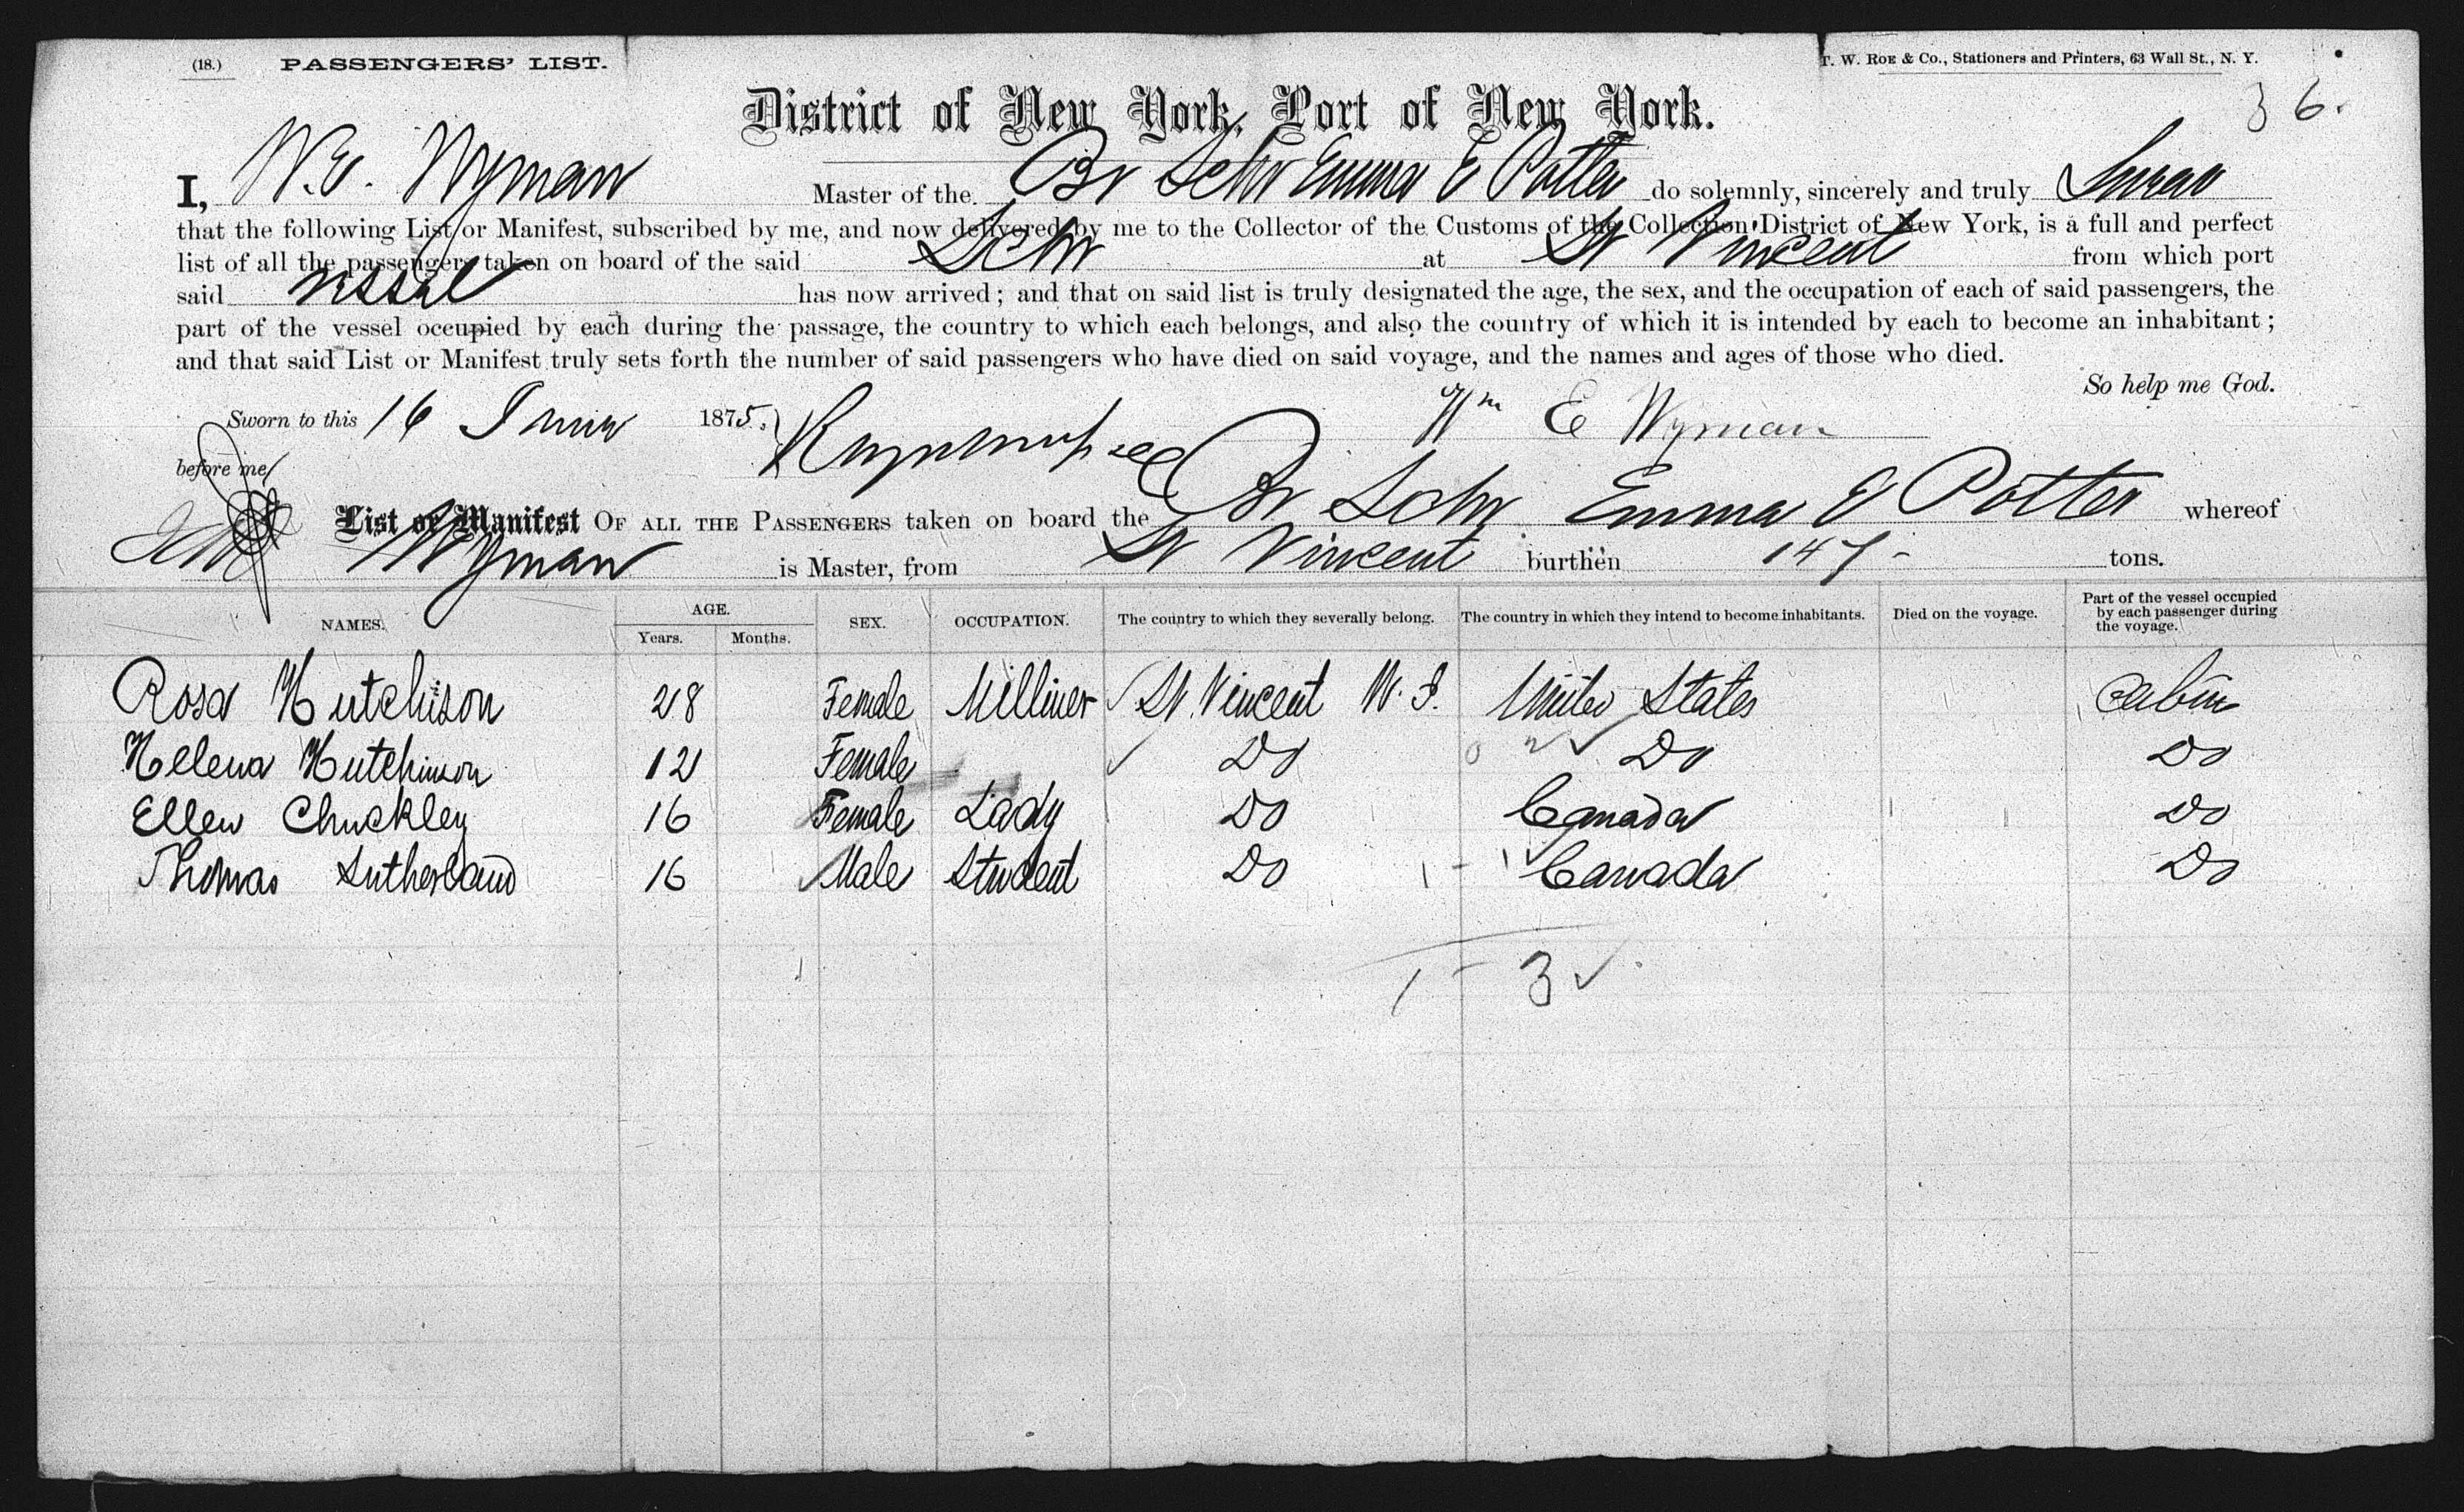 (18.) PASSENGERS' LIST. T. W. Roe & Co., Stationers and Printers, 63 Wall St., N. Y.
36.
District of New York, Port of New York.
I, W. E. Wyman Master of the Br Schr Emma E Potter do solemnly, sincerely and truly Swear
that the following List or Manifest, subscribed by me, and now delivered by me to the Collector of the Customs of the Collection District of New York, is a full and perfect
list of all the passengers taken on board of the said Schr at St Vincent from which port
said vessel has now arrived; and that on said list is truly designated the age, the sex, and the occupation of each of said passengers, the
part of the vessel occupied by each during the passage, the country to which each belongs, and also the country of which it is intended by each to become an inhabitant;
and that said List or Manifest truly sets forth the number of said passengers who have died on said voyage, and the names and ages of those who died.
So help me God.
Sworn to this 16 1875. Wm E Wyman
before me
List or Manifest OF ALL THE PASSENGERS taken on board the Br Schr Emma E Potter whereof
Wyman is Master, from St Vincent burthen 147 tons.
NAMES. AGE. Years. Months. SEX. OCCUPATION. The country to which they severally belong. The country in which they intend to become inhabitants. Died on the voyage. Part of the vessel occupied by each passenger during the voyage.
Rosa Hutchison 28 Female Milliner St. Vincent W. I. United States Cabin
Helena Hutchinson 12 Female Do Do Do
Ellen Chuckley 16 Female Lady Do Canada Do
Thomas Sutherland 16 Male Student Do Canada Do
1 - 3